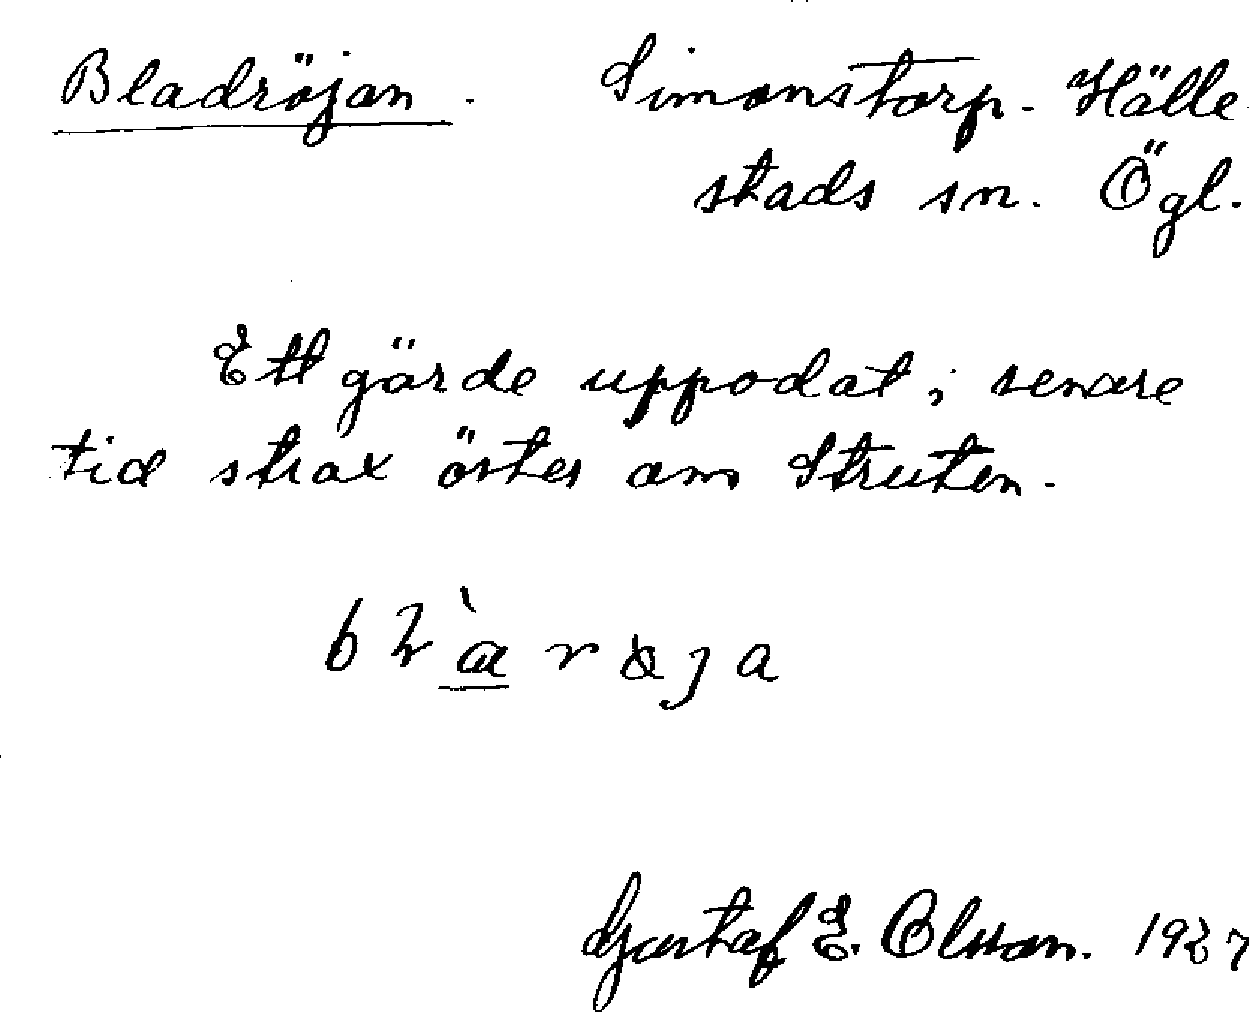 Bladröjan. Simonstorp. Hälle-
stads sn. Ögl.
Ett gärde uppodat i senare
tid strax öster om Struten.
Gustaf E. Olsson. 1927